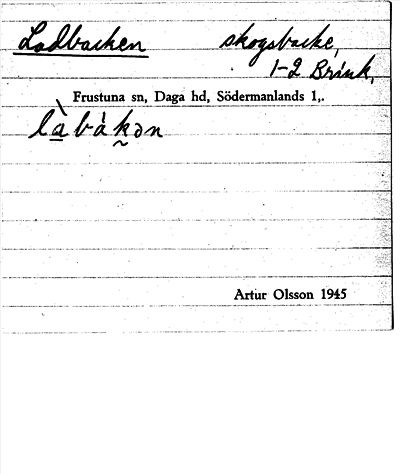 Ladbacken skogsbacke,
1-2 Brink,
Frustuna sn, Daga hd, Södermanlands l,.
là̱bákən
Artur Olsson 1945